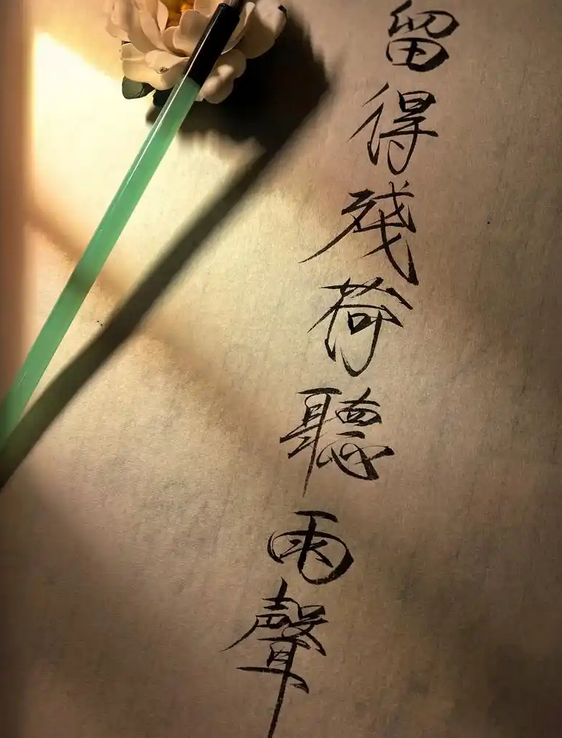 留得殘荷聽雨聲